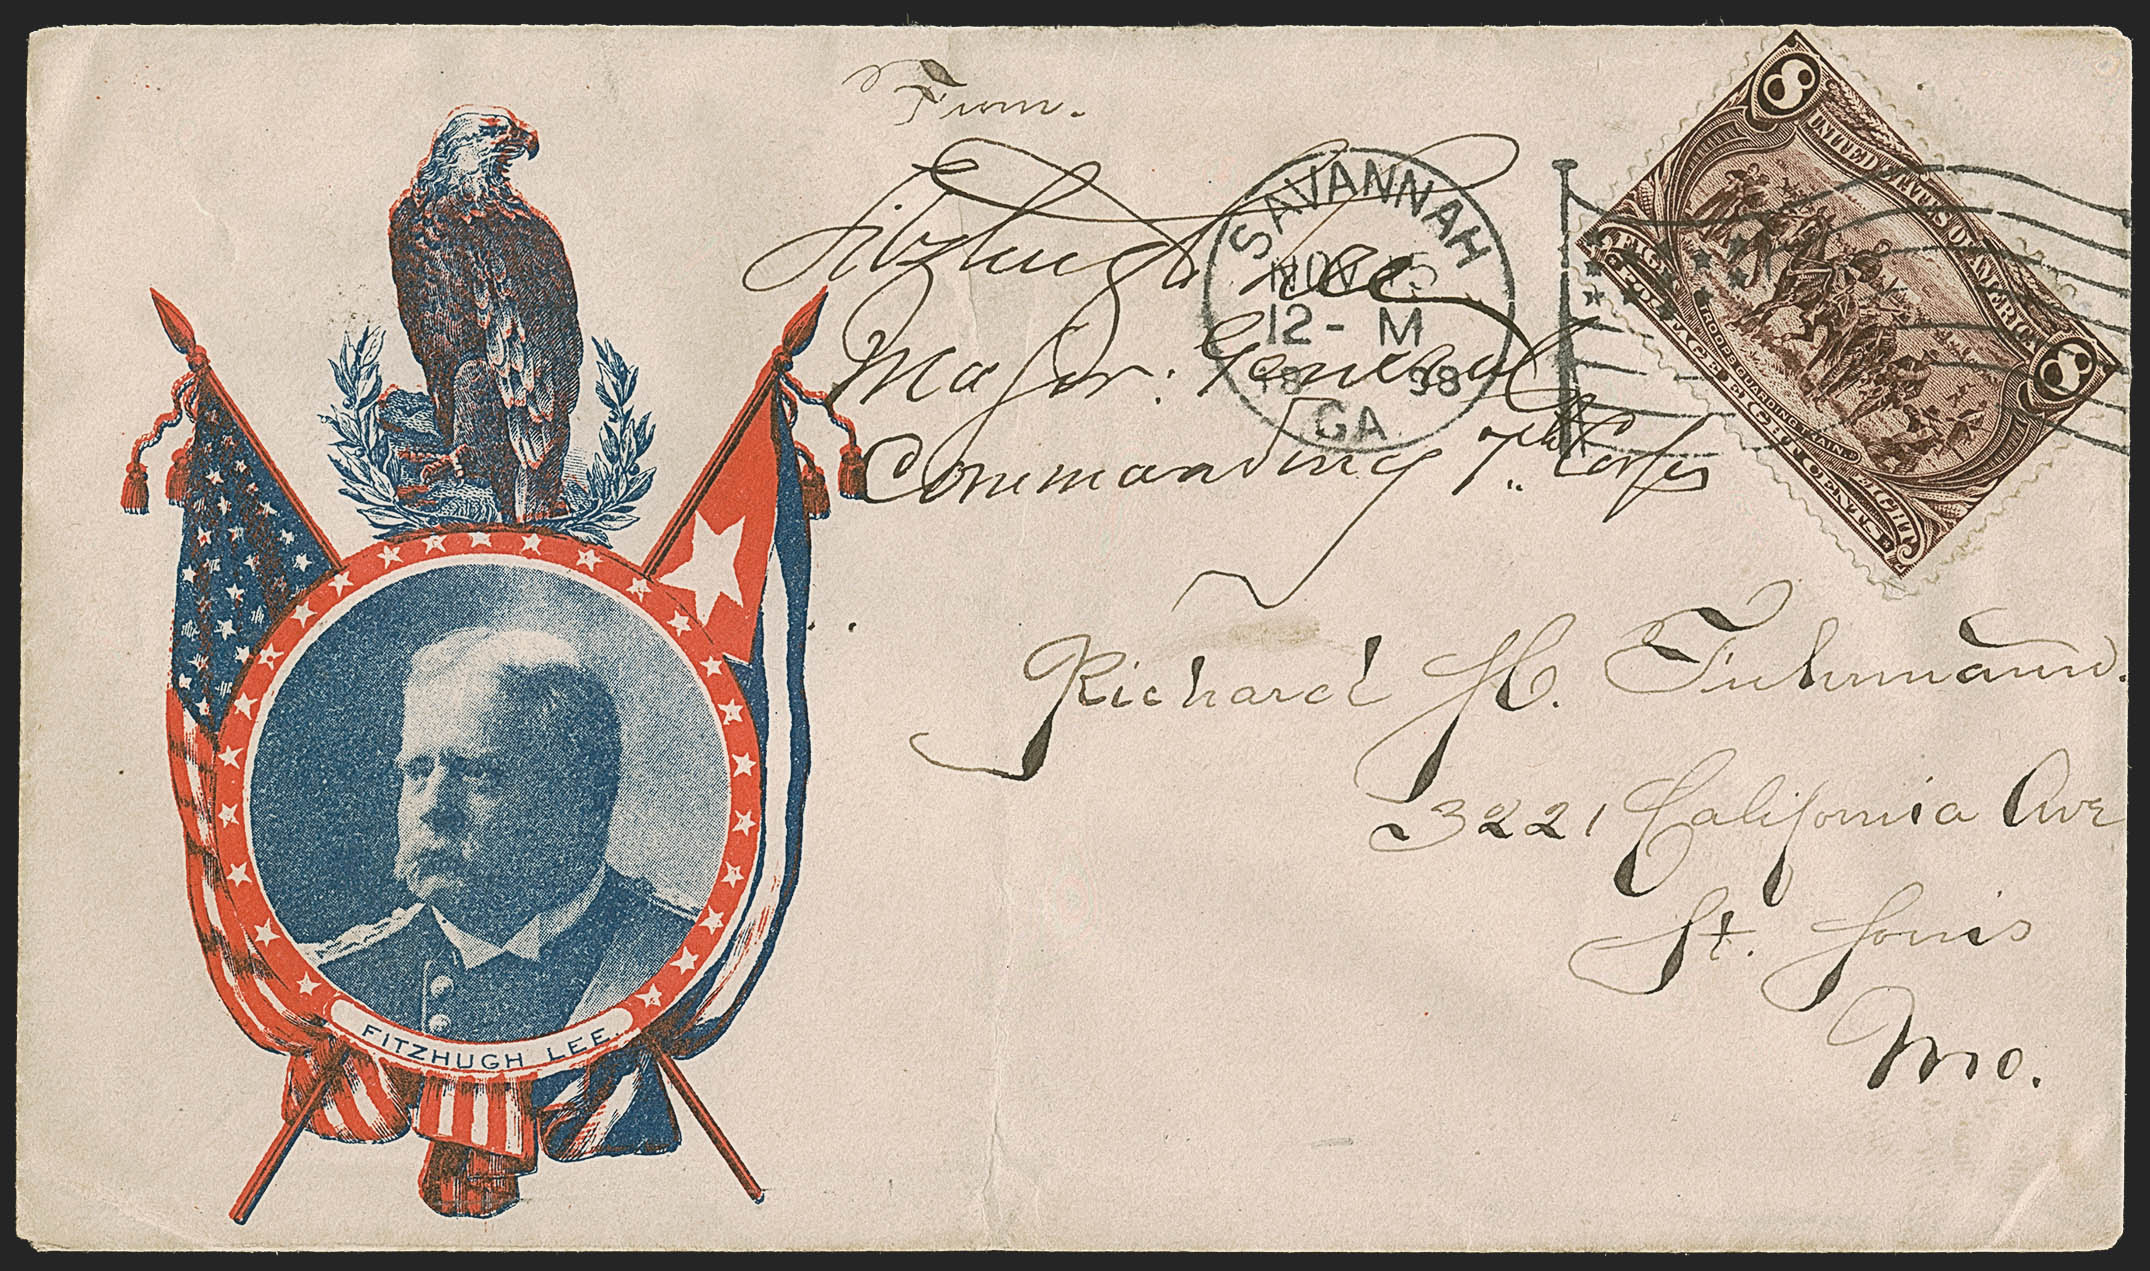 From.
Fitzhugh Lee
Major. General
Commanding 7th Corps
SAVANNAH
NOV 15
12 - M
18 98
GA.
8 8
UNITED STATES OF AMERICA
TROOPS GUARDING TRAIN
POSTAGE EIGHT CENTS
Richard H. Fuhrmann.
3221 California Ave
St. Louis
Mo.
FITZHUGH LEE.